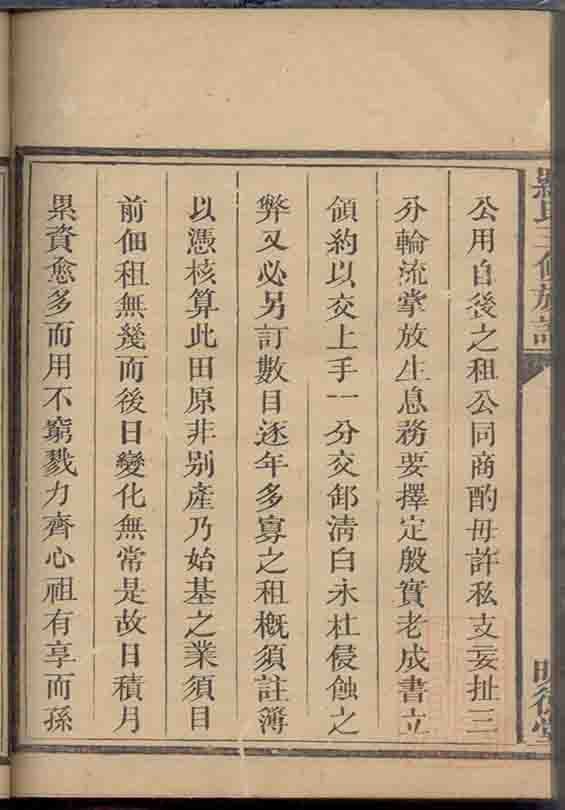 羅氏三修族譜
公用自後之租公同商酌毋許私支妄扯三
分輪流掌放生息務要擇定殷實老成書立
領約以交上手一分交卸淸白永杜侵蝕之
弊又必另訂數目逐年多寡之租槪須註簿
以憑核算此田原非别產乃始基之業須目
前佃租無幾而後日變化無常是故日積月
累資愈多而用不窮戮力齊心祖有享而孫